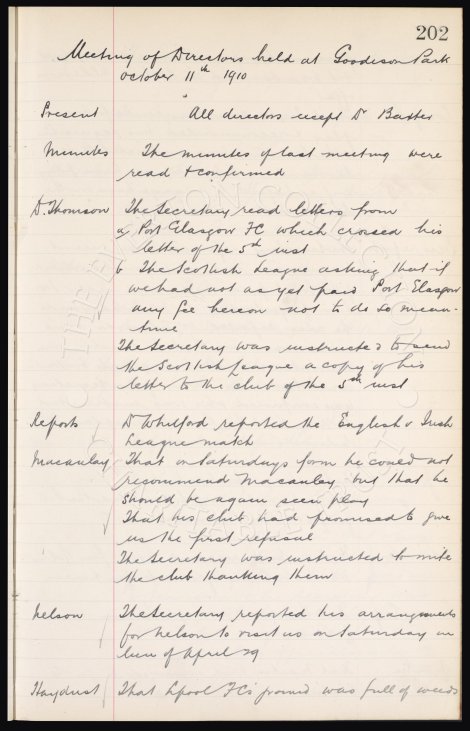 202
Meeting of Directors held at Goodison Park
October 11th 1910
Present All directors except Dr Baxter
Minutes The minutes of last meeting were
read & confirmed
D. Thomson The Secretary read letters from
a) Port Glasgow FC which crossed his
letter of the 5th inst
b The Scottish League asking that if
we had not as yet paid Port Glasgow
any fee hereon not to do so mean-
time
The Secretary was instructed to send
the Scottish League a copy of his
letter to the club of the 5th inst
Reports D Whitford reported the English v Irish
League match
Macaulay That on Saturdays form he could not
recommend Macauley but that he
should be again seen play
That his club had promised to give
us the first refusal
The Secretary was instructed to write
the club thanking them
Nelson The Secretary reported his arrangements
for Nelson to visit us on Saturday in
lieu of April 29
Haydust That Lpool FC's ground was full of weeds